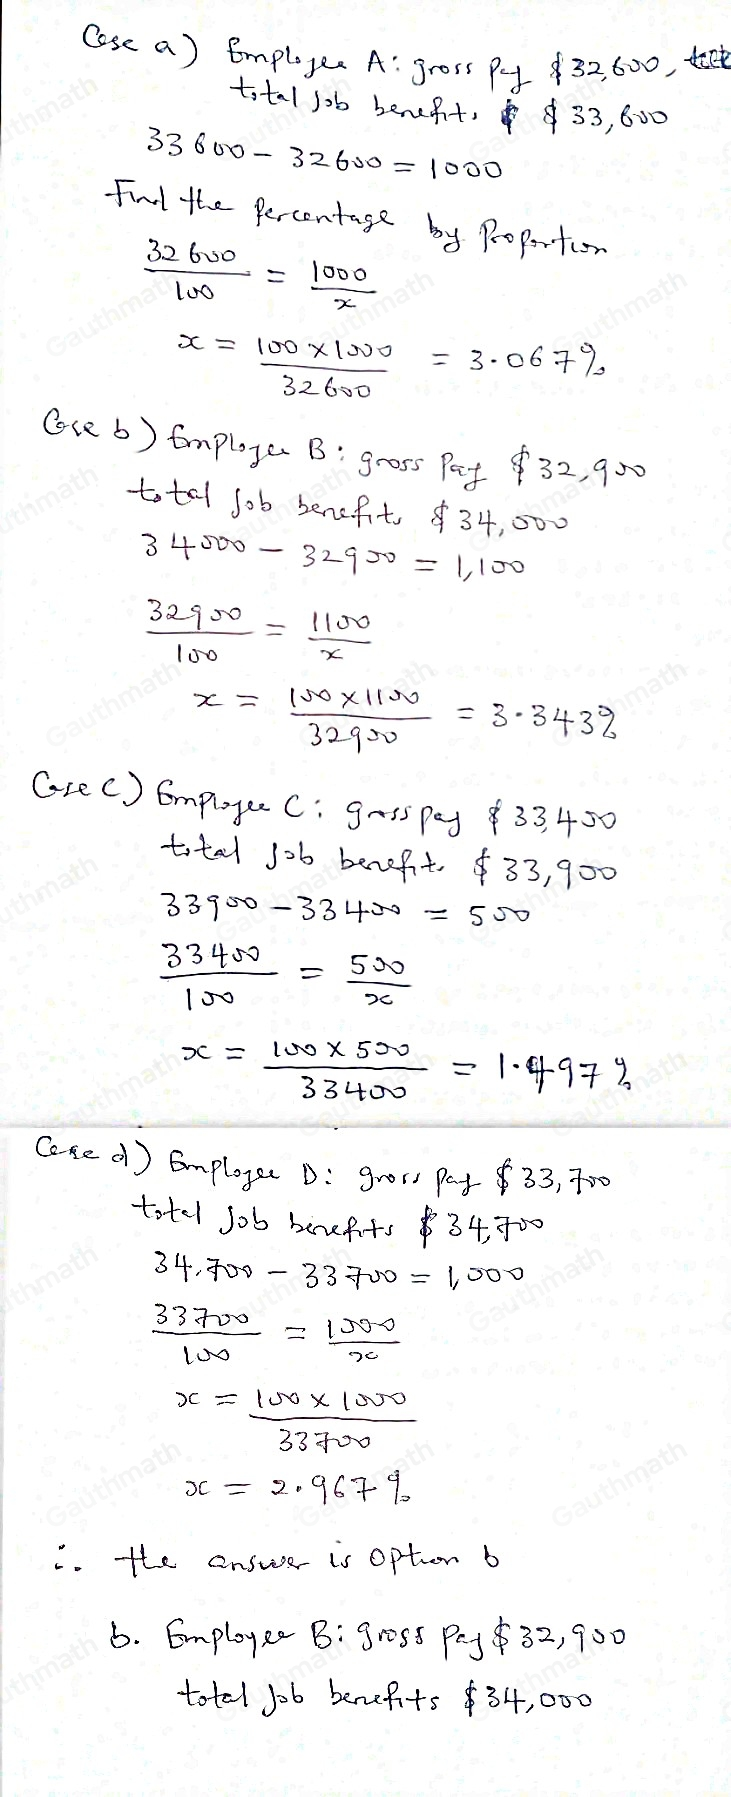 Case a) Employee A: gross pay $32,600,
total job benefits $33,600
33600 - 32600 = 1000
Find the percentage by proportion
32600/100 = 1000/x
x = 100 x 1000/32600 = 3.067%
Case b) Employee B: gross pay $32,900
total job benefits $34,000
34000 - 32900 = 1,100
32900/100 = 1100/x
x = 100 x 1100/32900 = 3.343%
Case c) Employee C: gross pay $33,400
total job benefits $33,900
33900 - 33400 = 500
33400/100 = 500/x
x = 100 x 500/33400 = 1.497%
Case d) Employee D: gross pay $33,700
total job benefits $34,700
34,700 - 33700 = 1,000
33700/100 = 1000/x
x = 100 x 1000/33700
x = 2.967%
∴ the answer is option b
b. Employee B: gross pay $32,900
total job benefits $34,000